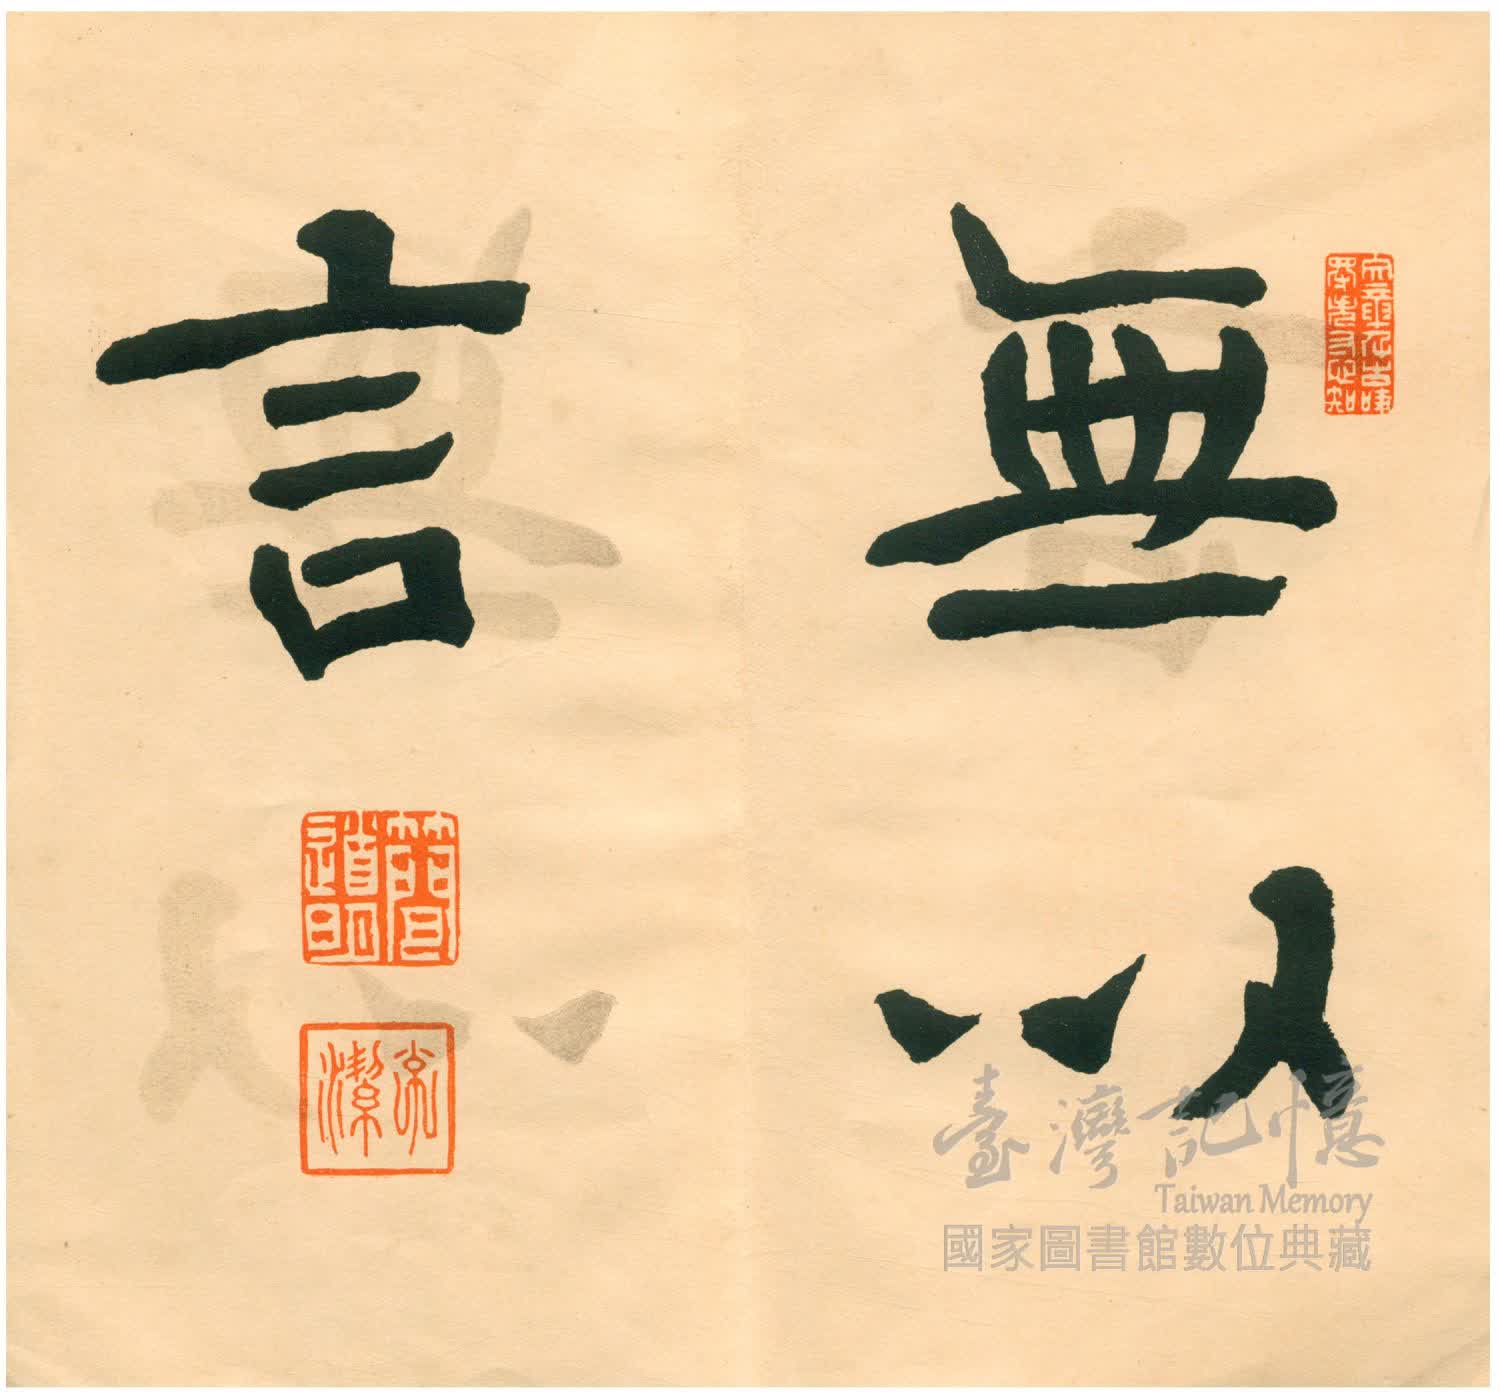 無以
言
臺灣記憶
Taiwan Memory
國家圖書館數位典藏